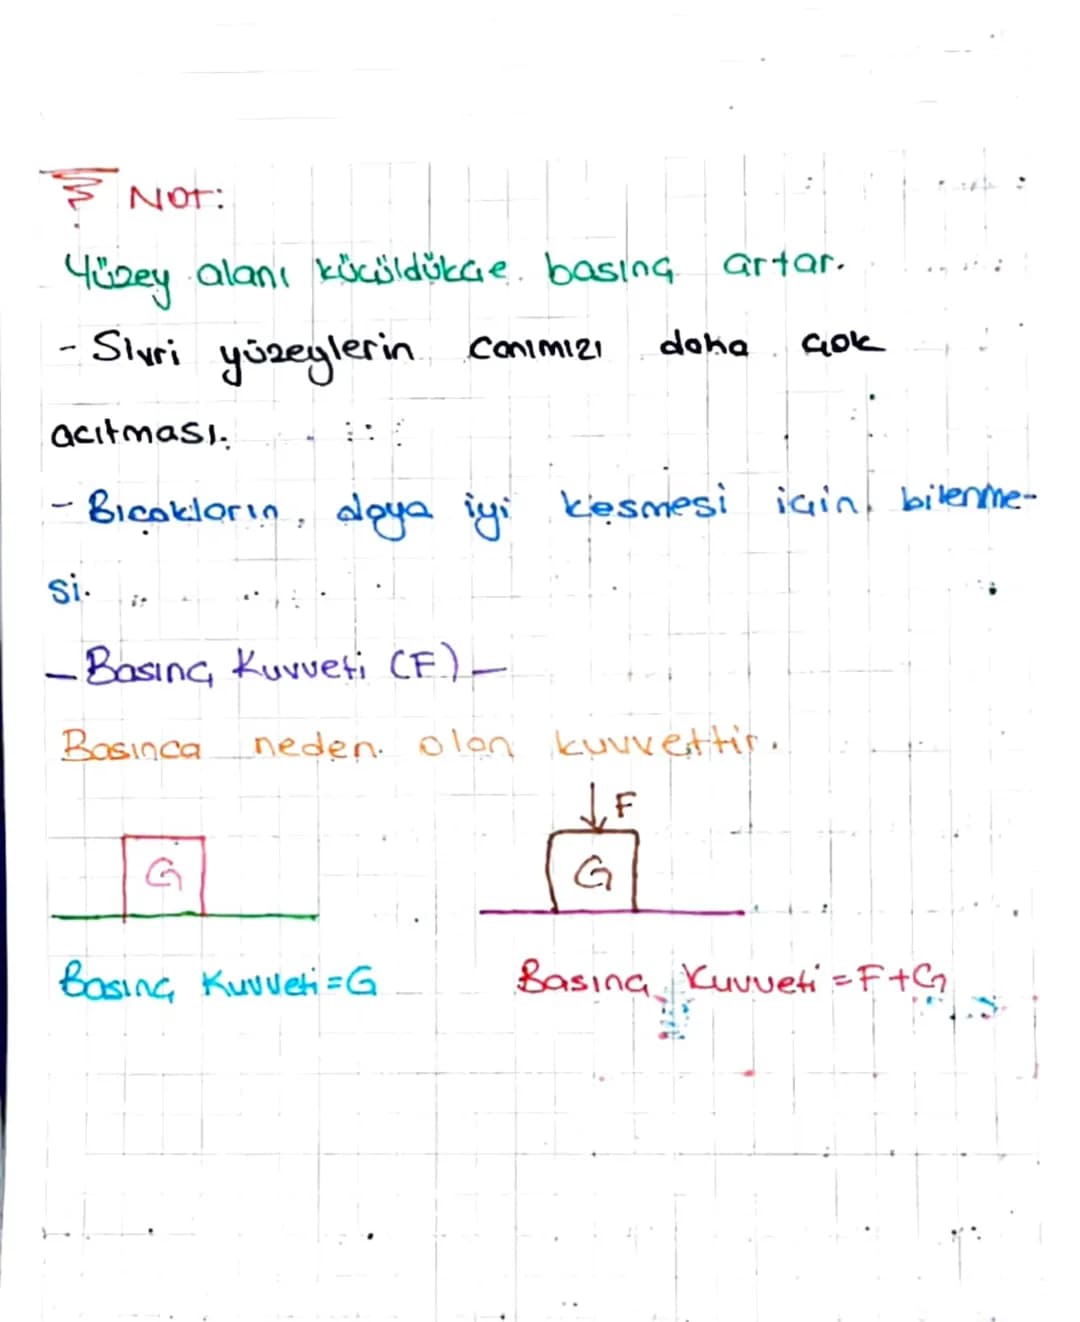 NOT:
Yüzey alanı küçüldükçe basınç artar.
- Sivri yüzeylerin canımızı daha çok
acıtması.
- Bıçakların, daya iyi kesmesi için bilenme-
si.
- Basınç Kuvveti (F) -
Basınca neden olan kuvvettir.
F
G
G
Basınç Kuvveti = G
Basınç Kuvveti = F + G